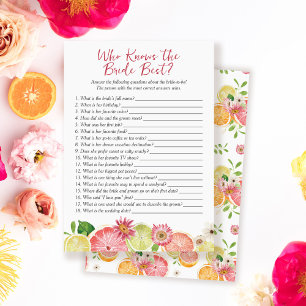 Who Knows the
Bride Best?
Answer the following questions about the bride-to-be!
The person with the most correct answers wins.
1. What is the bride's full name?
2. When is her birthday?
3. What is her favorite color?
4. How did she and the groom meet?
5. What was her first job?
6. What is her favorite food?
7. What is her favorite coffee or tea order?
8. What is her dream vacation destination?
9. Does she prefer sweet or salty snacks?
10. What is her favorite TV show?
11. What is her favorite hobby?
12. What is her biggest pet peeve?
13. What is one thing she can't live without?
14. What is her favorite way to spend a weekend?
15. Where did the bride and groom go on their first date?
16. Who said "I love you" first?
17. What is one word she would use to describe the groom?
18. What is the wedding date?